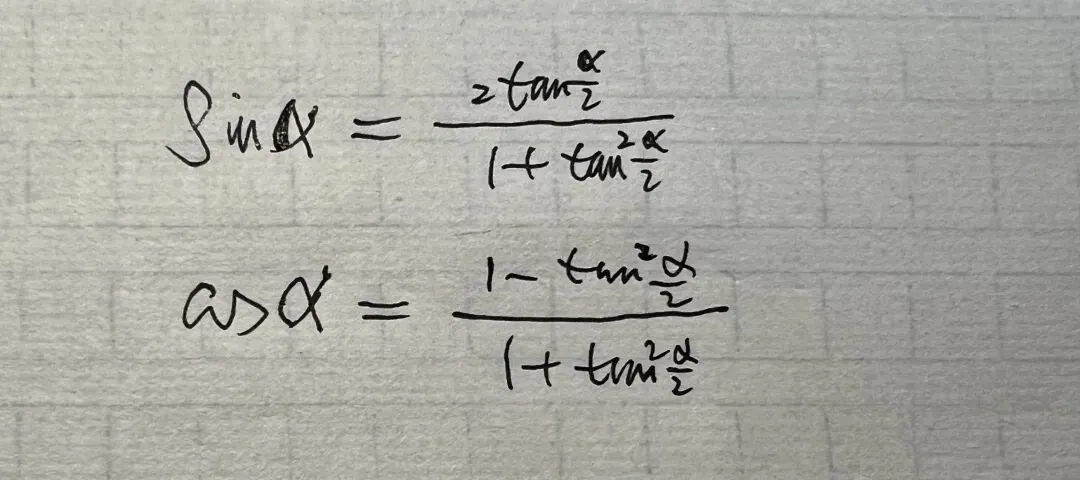 sin α = \frac{2 \tan \frac{α}{2}}{1 + \tan^2 \frac{α}{2}}
cos α = \frac{1 - \tan^2 \frac{α}{2}}{1 + \tan^2 \frac{α}{2}}